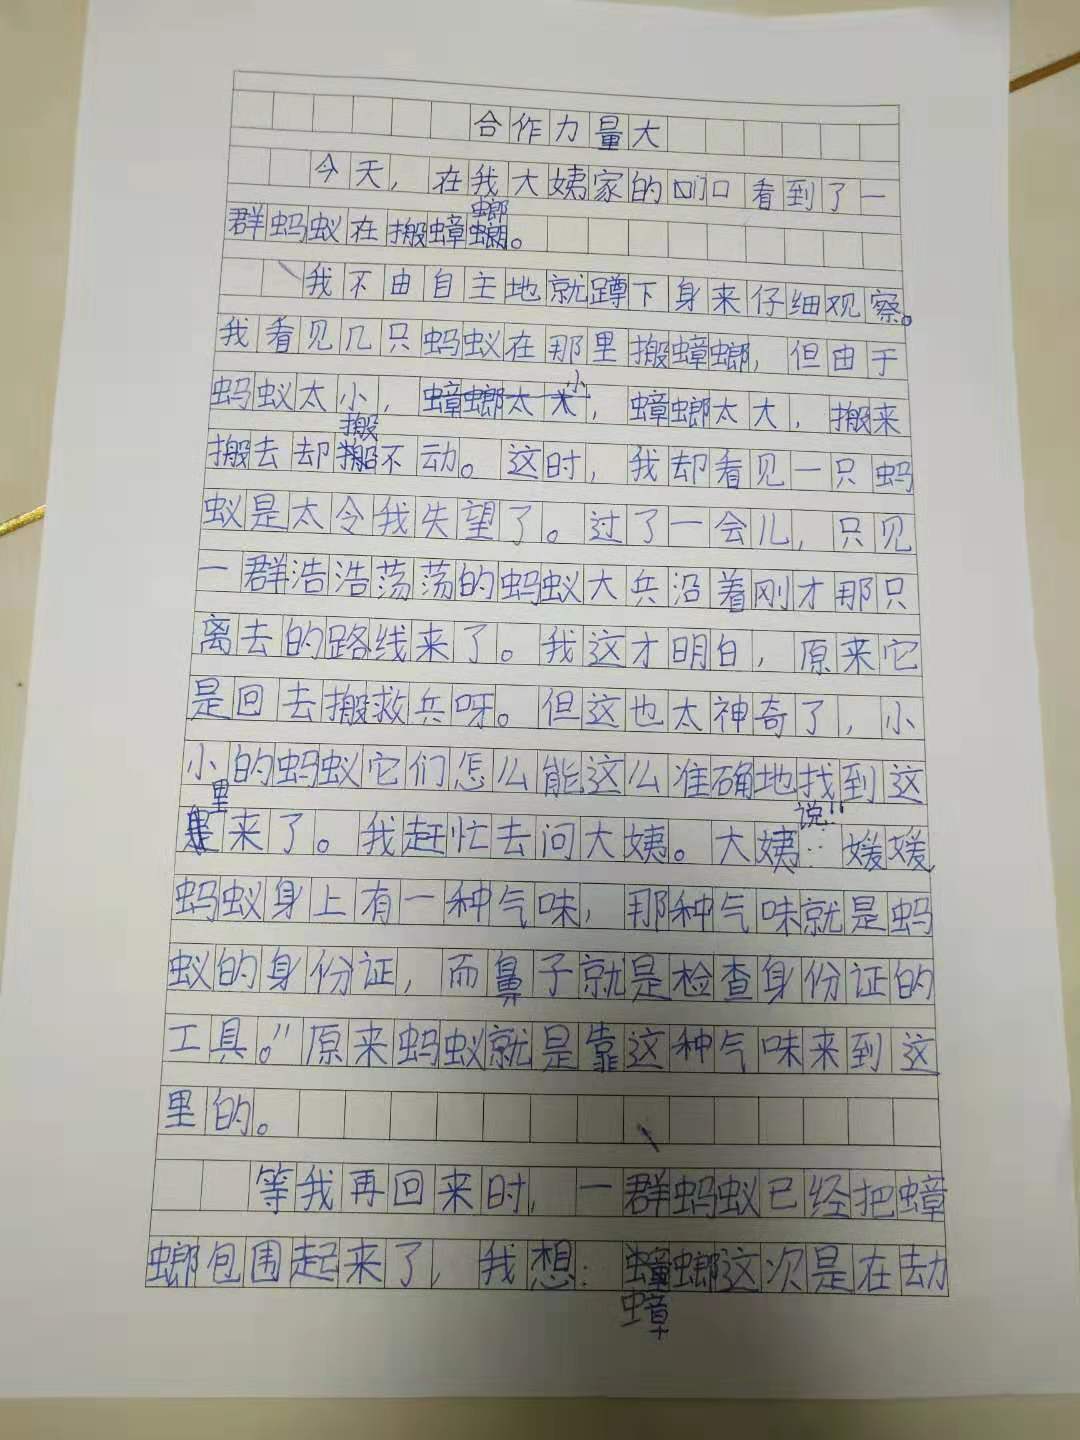 合作力量大
今天，在我大姨家的门口看到了一
群蚂蚁在搬蟑螂。
我不由自主地就蹲下身来仔细观察。
我看见几只蚂蚁在那里搬蟑螂，但由于
蚂蚁太小，蟑螂太大，搬来
搬去却搬不动。这时，我却看见一只蚂
蚁是太令我失望了。过了一会儿，只见
一群浩浩荡荡的蚂蚁大兵沿着刚才那只
离去的路线来了。我这才明白，原来它
是回去搬救兵呀。但这也太神奇了，小
小的蚂蚁它们怎么能这么准确地找到这
里来了。我赶忙去问大姨。大姨说："媛媛
蚂蚁身上有一种气味，那种气味就是蚂
蚁的身份证，而鼻子就是检查身份证的
工具。"原来蚂蚁就是靠这种气味来到这
里的。
等我再回来时，一群蚂蚁已经把蟑
螂包围起来了，我想：蟑螂这次是在劫